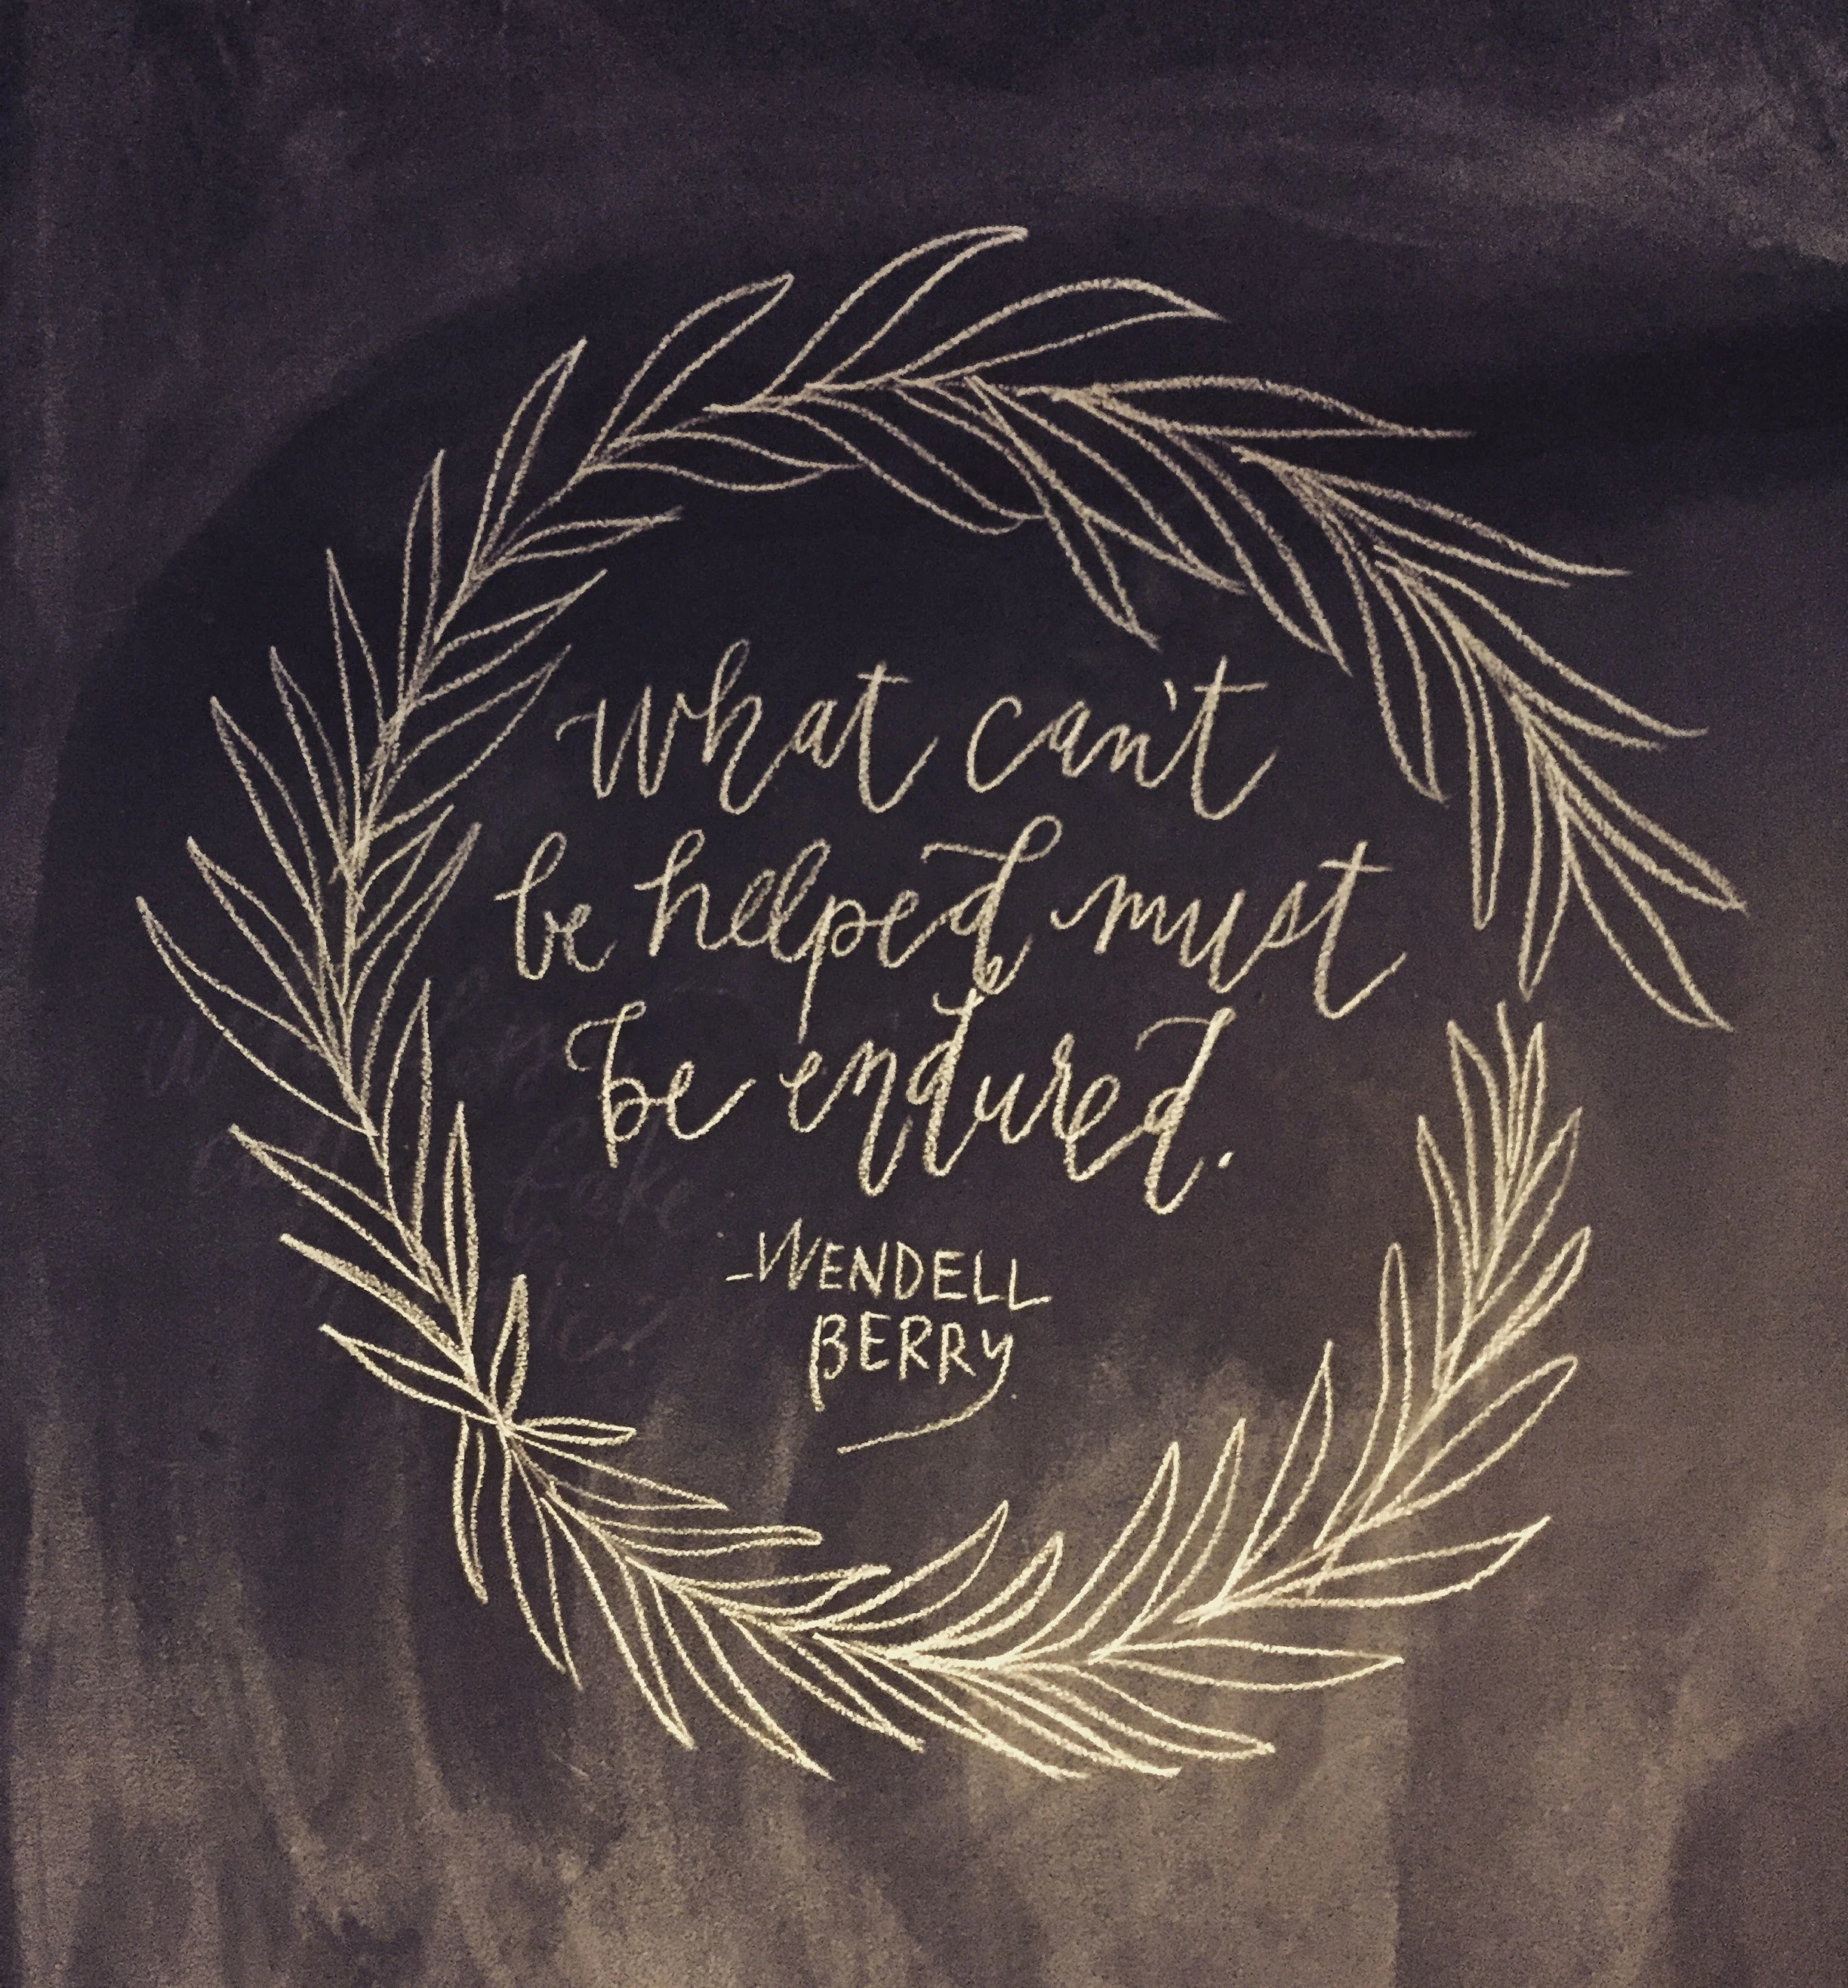 What can't
be helped must
be endured.
-WENDELL
BERRY